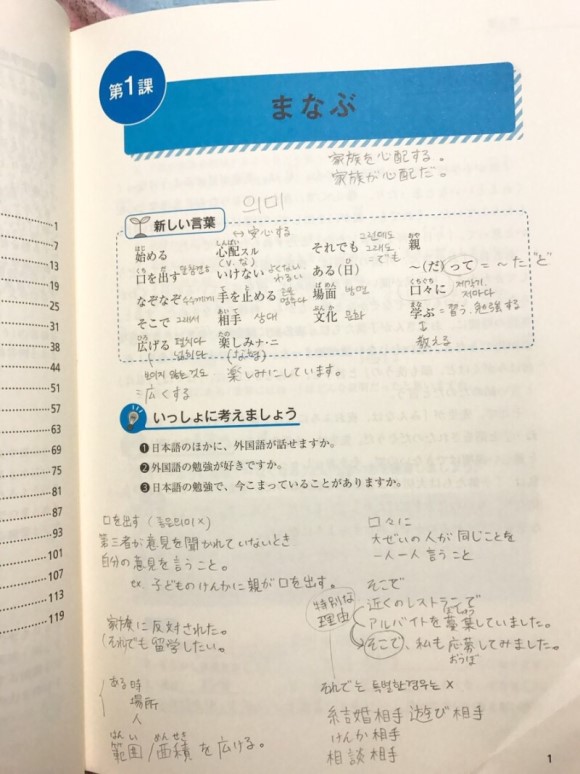 第1課
まなぶ
家族を心配する。
家族が心配だ。
의미
新しい言葉
↔ 安心する
始める 心配スル それでも 親
はじ しんぱい おや
(V. な)
그런데도
그래도
=でも
口を出す いけない ある(日) ～(だ)って = ～た"ど
くち ひ
わるい
なぞなぞ 手を止める 場面 口々に
て と ばめん くちぐち
수수께끼 방면 제각기, 저마다
そこで 相手 文化 学ぶ = 習う、勉強する
あいて ぶんか まな
그래서 상대 문화
広げる 楽しみナ・ニ 教える
ひろ たの
펼치다
넓히다
=広くする
楽しみにしています。
いっしょに考えましょう
❶日本語のほかに、外国語が話せますか。
❷外国語の勉強が好きですか。
❸日本語の勉強で、今こまっていることがありますか。
口を出す
第三者が意見を聞かれていないとき
自分の意見を言うこと。
ex. 子どものけんかに親が口を出す。
口々に
大ぜいの人が同じことを
一人一人言うこと
家族に反対された。
それでも留学したい。
ある時
場所
人
はんい めんせき
範囲/面積を広げる。
特別な
理由
そこで
近くのレストランで
アルバイトを募集していました。
そこで、私も応募してみました。
おうぼ
それでも 특별한경우는 X
結婚相手 遊び相手
けんか相手
相談相手
1
7
13
19
25
31
38
44
51
57
63
69
75
81
87
93
101
107
113
119
1